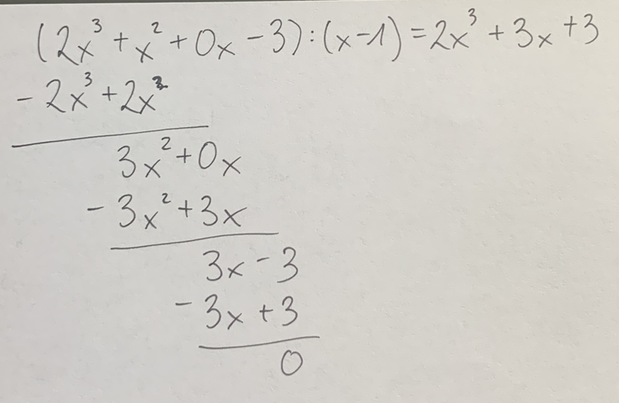 (2x³ + x² + 0x - 3) : (x - 1) = 2x³ + 3x + 3
- 2x³ + 2x²
3x² + 0x
- 3x² + 3x
3x - 3
- 3x + 3
0